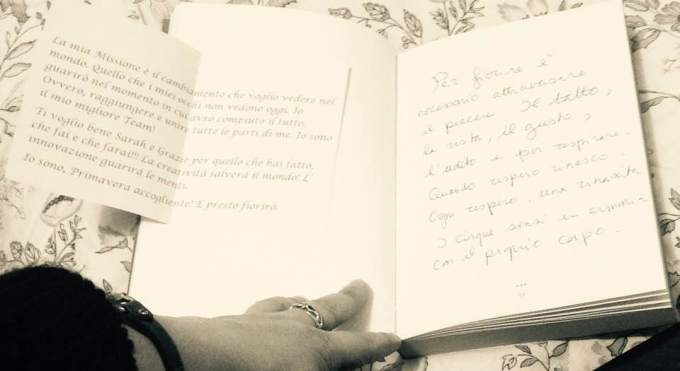 La mia Missione è il cambiamento che voglio vedere nel
mondo. Quello che i miei occhi non vedono oggi. Io
guarirò nel momento in cui avrò compiuto il tutto.
Ovvero, raggiungere e unire tutte le parti di me. Io sono
il mio migliore Team!
Ti voglio bene Sarah e Grazie per quello che hai fatto,
che fai e che farai!!! La creatività salverà il mondo! L'
innovazione guarirà le menti.
Io sono, Primavera accogliente! E presto fiorirò.
Per fiorire è
necessario attraversare
il piacere. Il tatto,
la vista, il gusto,
l'udito e poi respirare.
Quando respiro rinasco.
Ogni respiro, una rinascita
cinque sensi in armonia
con il proprio corpo.